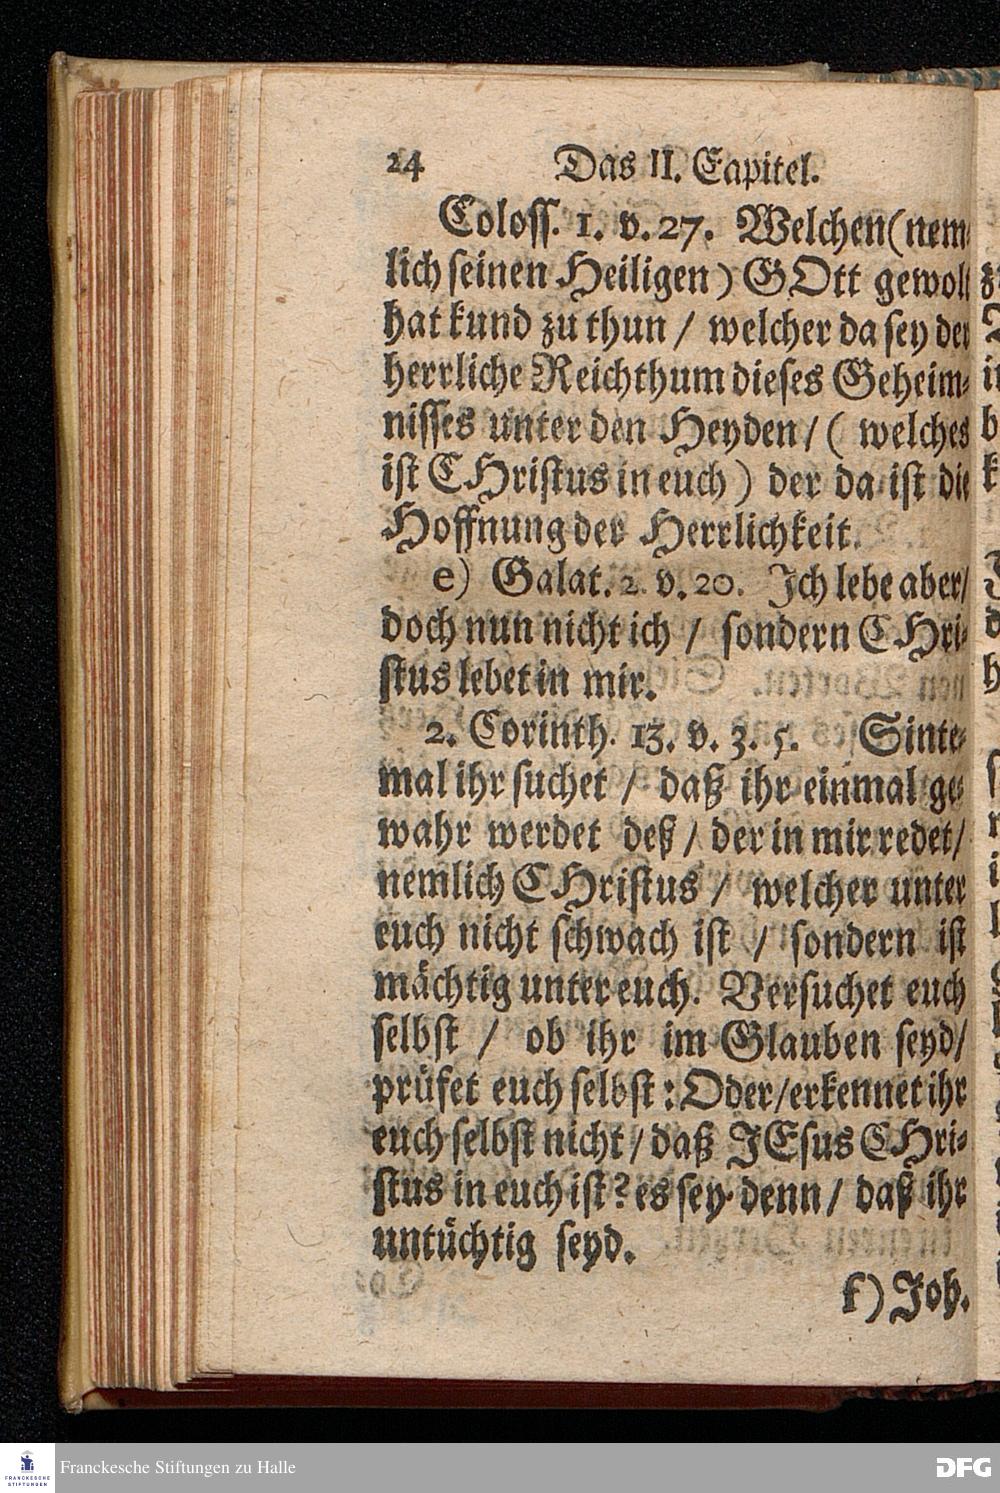 24 Das II. Capitel.
Coloss. 1. v. 27. Welchen (nem-
lich seinen Heiligen) GOtt gewolt
hat kund zu thun / welcher da sey der
herrliche Reichthum dieses Geheim-
nisses unter den Heyden / ( welches
ist CHristus in euch ) der da ist die
Hoffnung der Herrlichkeit.
e) Galat. 2. v. 20. Ich lebe aber/
doch nun nicht ich / sondern CHri-
stus lebet in mir.
2. Corinth. 13. v. 3. 5. Sinte-
mal ihr suchet / daß ihr einmal ge-
wahr werdet deß / der in mir redet/
nemlich CHristus / welcher unter
euch nicht schwach ist / sondern ist
mächtig unter euch. Versuchet euch
selbst / ob ihr im Glauben seyd/
prüfet euch selbst: Oder/erkennet ihr
euch selbst nicht / daß JEsus CHri-
stus in euch ist? es sey denn / daß ihr
untüchtig seyd.
f) Joh.
FRANCKESCHE STIFTUNGEN
Franckesche Stiftungen zu Halle
DFG